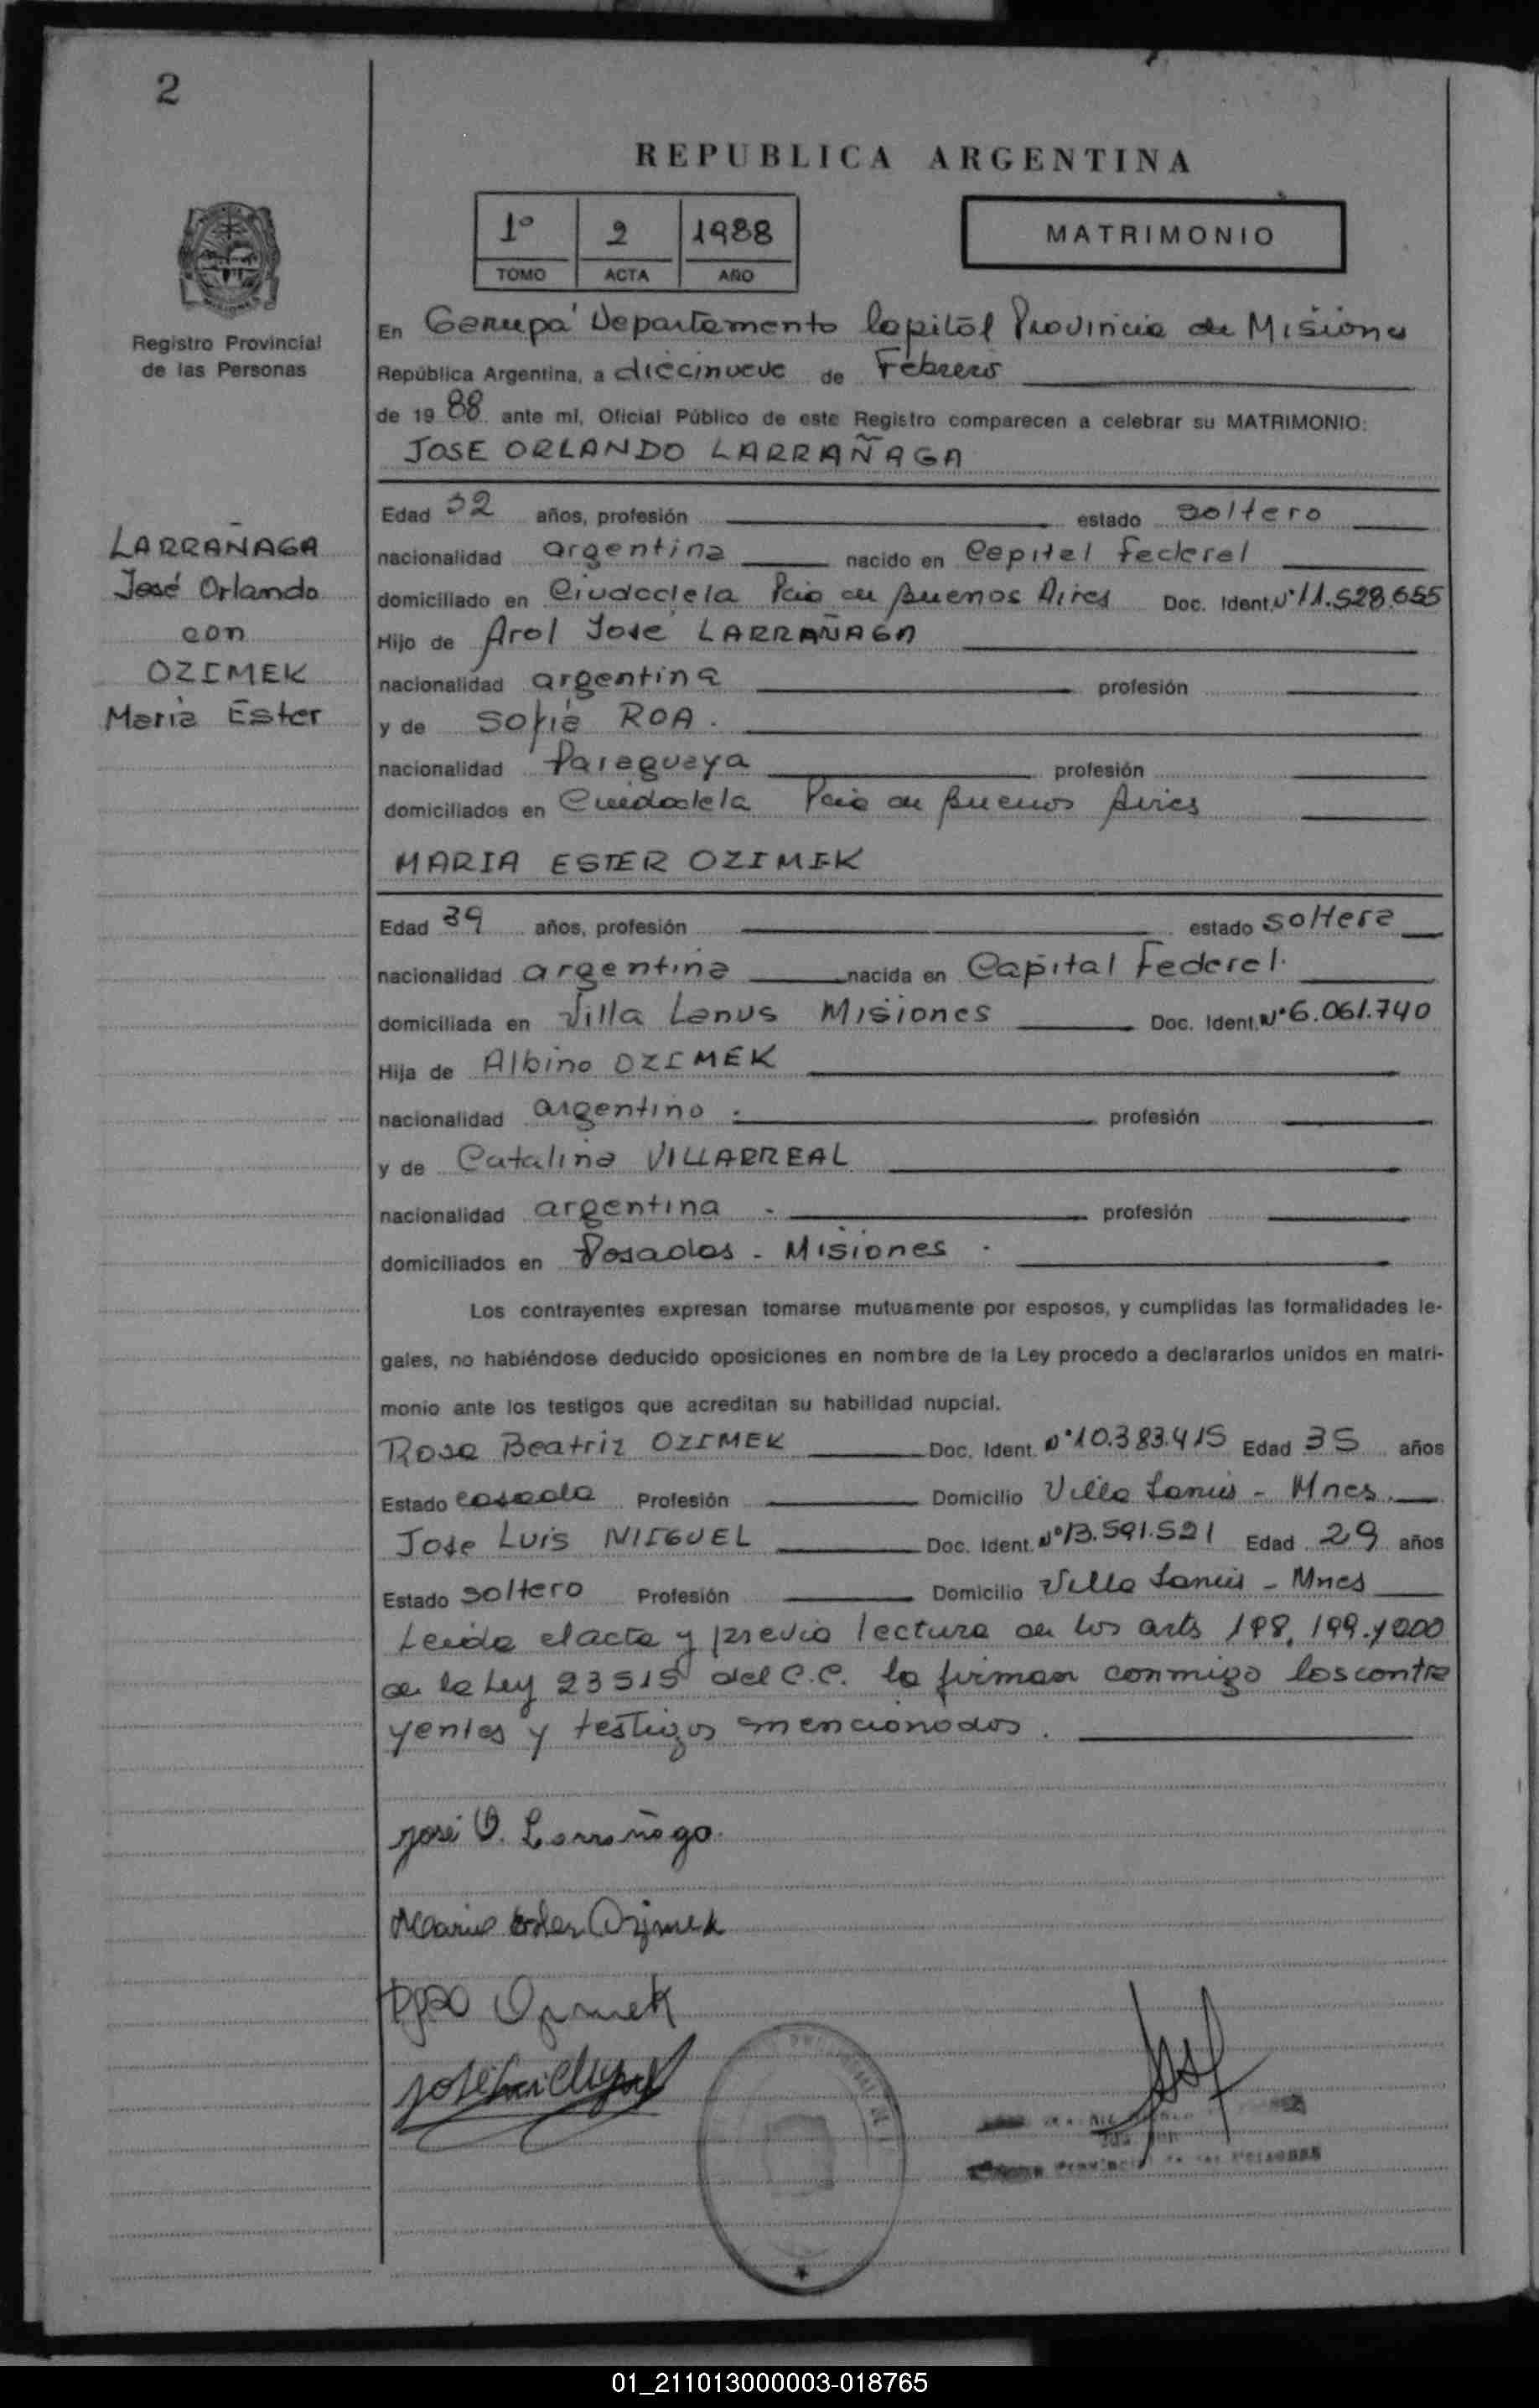 2
REPUBLICA ARGENTINA
1º 2 1988
TOMO ACTA AÑO
MATRIMONIO
Registro Provincial
de las Personas
En Garupá Departamento Capital Provincia de Misiones
República Argentina, a diecinueve de Febrero
de 1988 ante mí, Oficial Público de este Registro comparecen a celebrar su MATRIMONIO:
JOSE ORLANDO LARRAÑAGA
LARRAÑAGA
José Orlando
con
OZIMEK
Maria Ester
Edad 32 años, profesión estado soltero
nacionalidad argentina nacido en Capital Federal
domiciliado en Ciudadela Pcia de Buenos Aires Doc. Ident. Nº 11.528.655
Hijo de Arol Jose LARRAÑAGA
nacionalidad argentina profesión
y de Sofia ROA.
nacionalidad Paraguaya profesión
domiciliados en Ciudadela Pcia de Buenos Aires
MARIA ESTER OZIMEK
Edad 39 años, profesión estado soltera
nacionalidad argentina nacida en Capital Federal.
domiciliada en Villa Lanus Misiones Doc. Ident. Nº 6.061.740
Hija de Albino OZIMEK
nacionalidad argentino. profesión
y de Catalina VILLARREAL
nacionalidad argentina - profesión
domiciliados en Posadas - Misiones -
Los contrayentes expresan tomarse mutuamente por esposos, y cumplidas las formalidades le-
gales, no habiéndose deducido oposiciones en nombre de la Ley procedo a declararlos unidos en matri-
monio ante los testigos que acreditan su habilidad nupcial.
Rosa Beatriz OZIMEK Doc. Ident. Nº 10.383.415 Edad 35 años
Estado casada Profesión Domicilio Villa Lanús - Mnes.
Jose Luis MIGUEL Doc. Ident. Nº 13.591.521 Edad 29 años
Estado soltero Profesión Domicilio Villa Lanús - Mnes
Leida el acta y previa lectura de los arts 198, 199 y 200
de la Ley 23515 del C.C. la firman conmigo los contra
yentes y testigos mencionados.
José O. Larrañaga
Maria Ester Ozimek
Ozimek
Provincial de las Personas
01_211013000003-018765